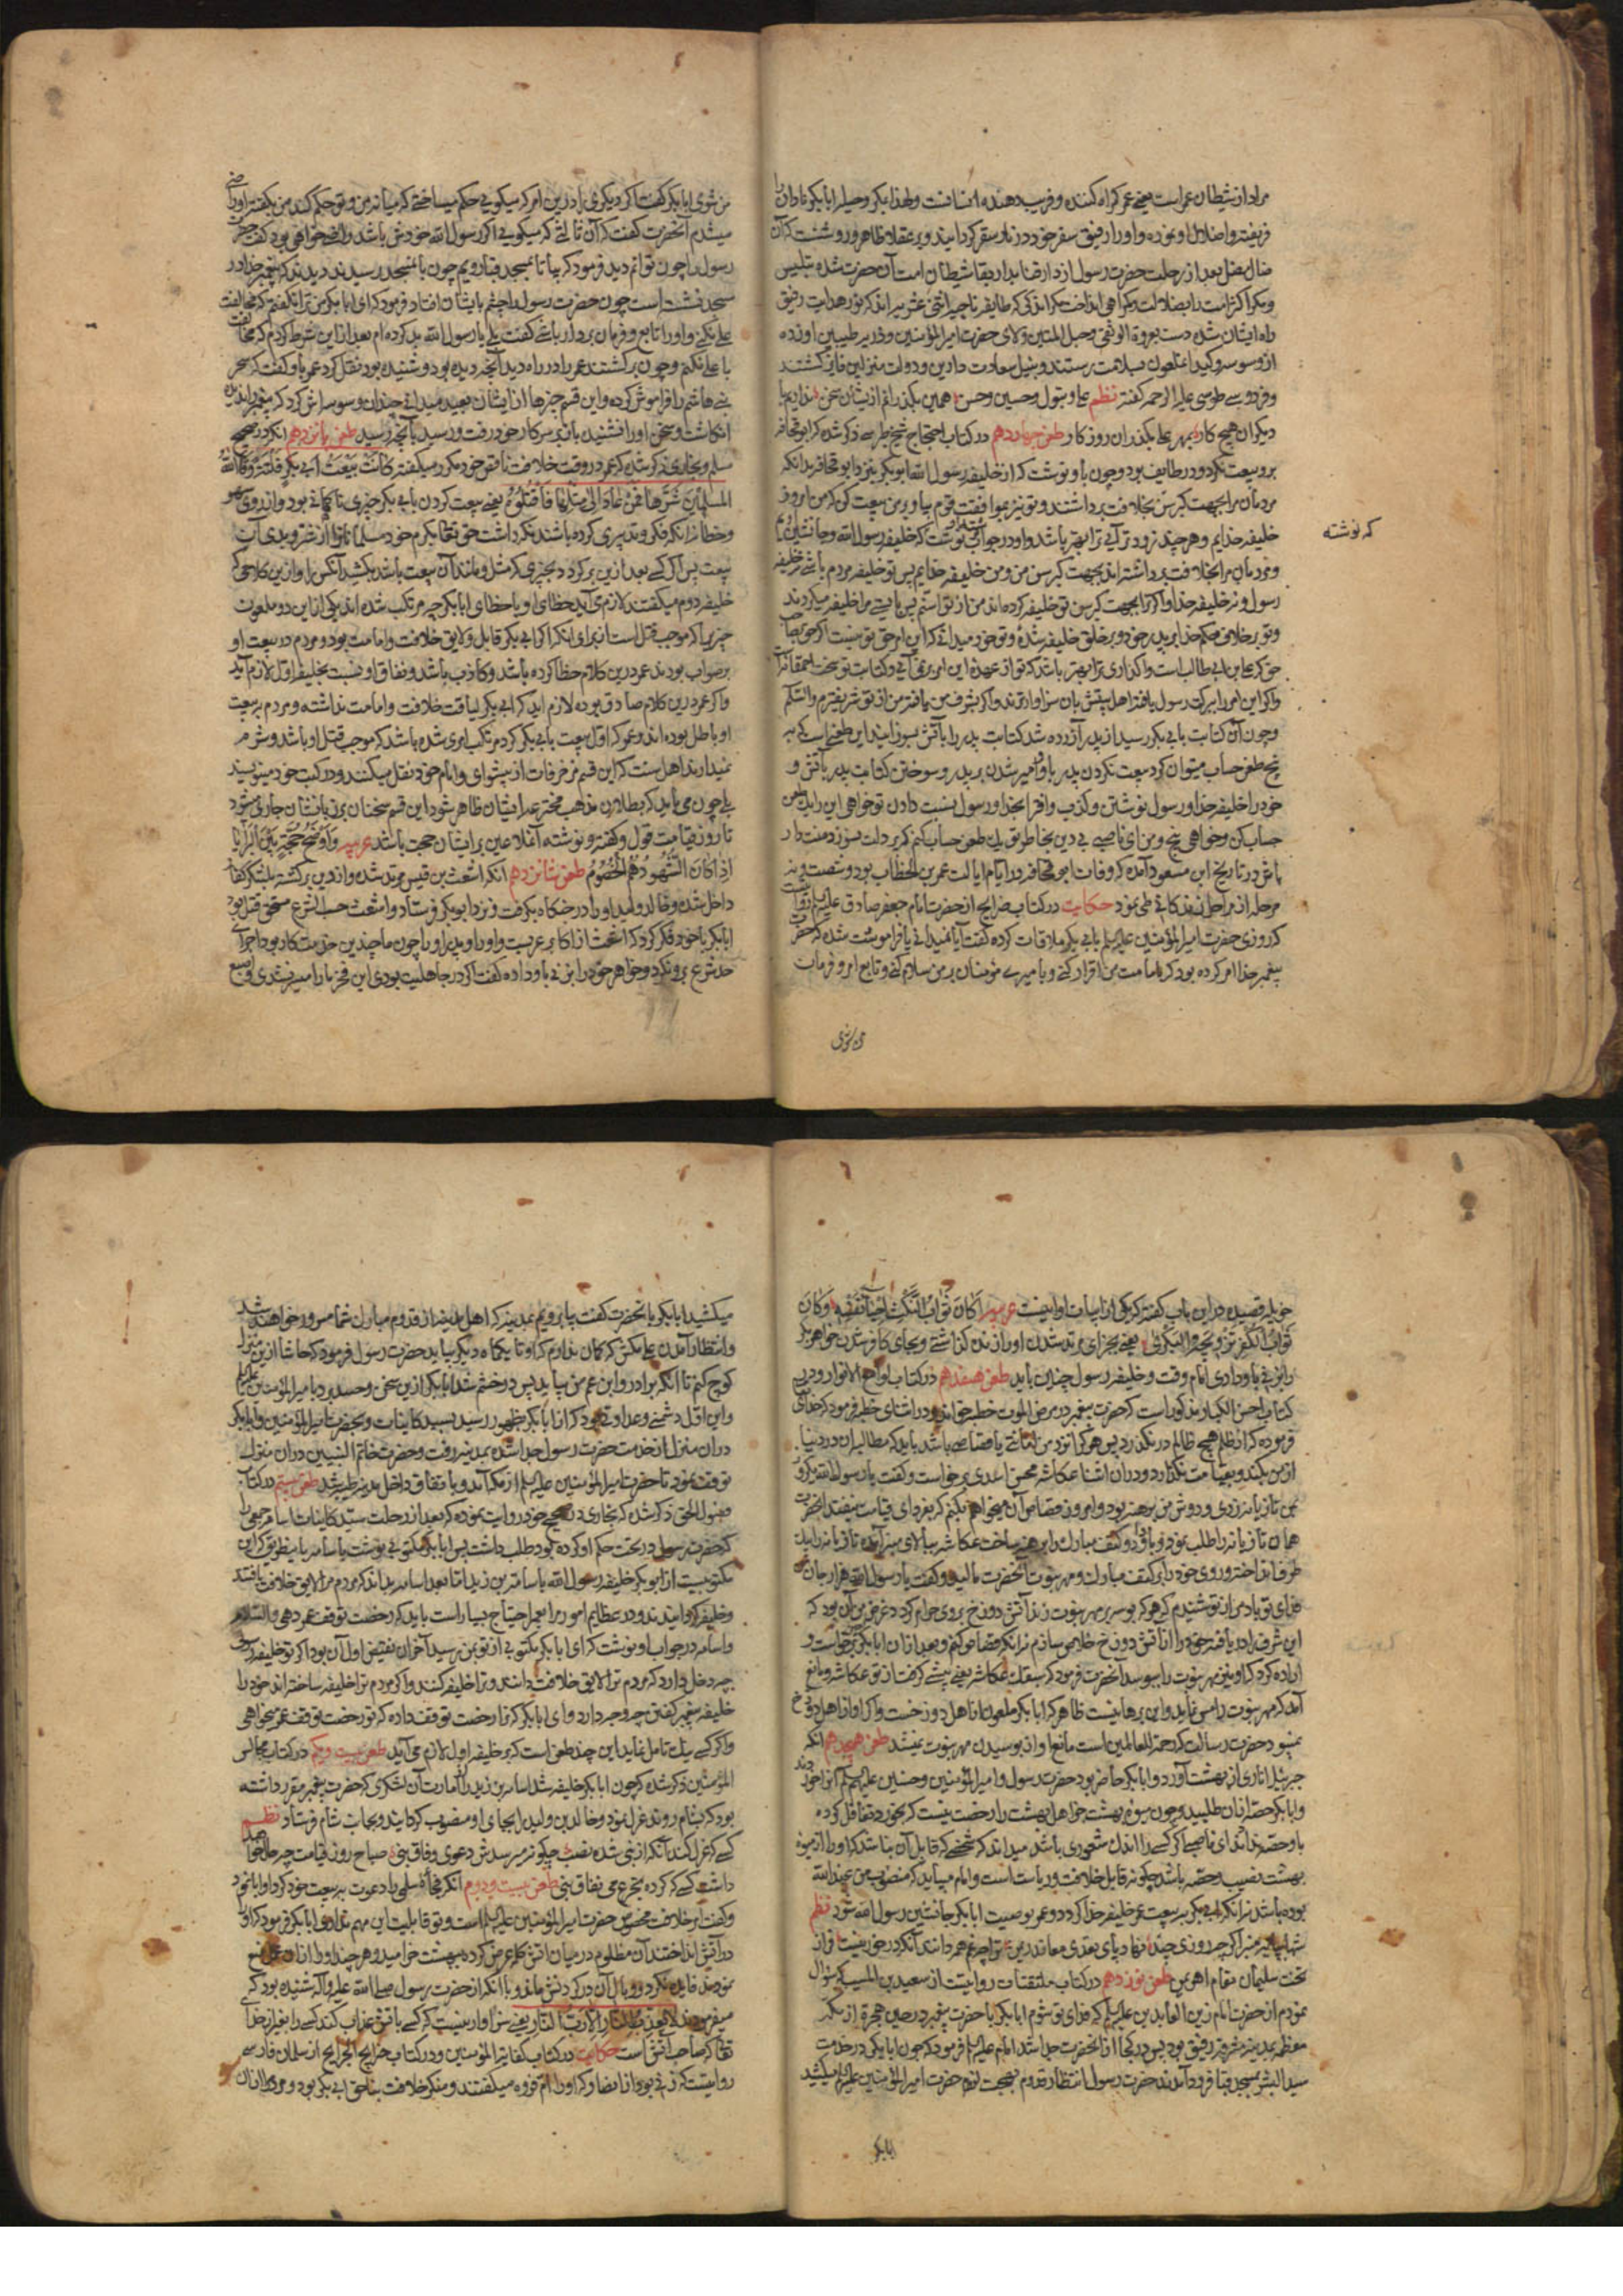 مراد از شیطان عمر است یعنی عمر گمراه کننده و فریب دهنده
فریفته و اضلال او نموده و او را رفیق سفر خود در نار سقر گردانید و بر عقلا ظاهر و روشنست که آن
ضال مضل بعد از رحلت حضرت رسول از دار فنا بدار بقا شیطان امت آن حضرت شده بتلبیس
و مکر اکثر امت را بضلالت و گمراهی انداخت مگر اندکی که طایفه ناجیه اثنی عشریه اند که نور هدایت رفیق
راه ایشان شده دست بعروة الوثقی و حبل المتین ولای حضرت امیر المؤمنین و ذریه طیبین او زده
از وسوسه و کید آن ملعون بسلامت رستند و بنیل سعادت دارین و دولت منزلین فایز گشتند
و فردوسی طوسی علیه الرحمه گفته نظم علی و بتول و حسین و حسن
دیگران هیچ کار طعن چهاردهم در کتاب احتجاج شیخ طبرسی ذکر شده که ابو قحافه
برو بیعت نکرد و در طایف بود و چون باو نوشت که از خلیفه رسول الله ابو بکر بنزد ابو قحافه بدانکه
مردمان مرا بجهت کبر سن بخلافت برداشتند و تو نیز بموافقت قوم بیا و بر من بیعت کن که من امروز
خلیفه خدایم و هر چند زودتر آیی ترا بهتر باشد و او در جواب نوشت که خلیفه رسول الله و جانشین
و مردمان مرا بخلافت برداشته اند بجهت کبر سن من و من خلیفه خدایم پس تو خلیفه مردم باشی نه خلیفه
رسول و نه خلیفه خدا و اگر ترا بجهت کبر سن تو خلیفه کرده اند من از تو اسنم پس بایستی مرا خلیفه میکردند
و تو بر خلاف حکم خدا بر پدر خود و بر خلق خلیفه شدهٔ و تو خود میدانی که این امر حق تو نیست اگر حق
حق که علی بن ابی طالب است واگذاری ترا بهتر باشد که تو از عهده این امر بر نمی آیی و کتابت تو سخت احمقانه
و اگر این امر را ببرکت رسول یافته اهل بیتش بان سزاوارترند و اگر بشرف من یافته من از تو شریفترم والسلم
و چون آن کتابت بابی بکر رسید از پدر آزرده شد کتابت پدر را بآتش بسوزانید این طعنی است که به
پنج طعن حساب میتوان کرد بیعت نکردن پدر باو و امیر شدن بر پدر و سوختن کتابت پدر بآتش و
خود را خلیفه خدا و رسول نوشتن و کذب و افترا بخدا و رسول نسبت دادن تو خواهی این را یک طعن
حساب کن و خواهی پنج و من ای ناصبی بی دین بخاطر تو یک طعن حساب کنم که بر دلت سوزد منت دار
باش در تاریخ ابن مسعود آمده که وفات ابو قحافه در ایام ایالت عمر بن الخطاب بود و شصت و نه
مرحله از مراحل زندگانی طی نمود حکایت در کتاب خرایج از حضرت امام جعفر صادق علیه السلم روایت
که روزی حضرت امیر المؤمنین علیه السلم بابی بکر ملاقات کرده گفت آیا نمیدانی یا فراموشت شده که حضرت
پیغمبر خدا امر کرده بود که بامامت من اقرار کنی و بامیری مؤمنان بر من سلام کنی و تابع امر و فرمان
که نوشته
من شوی
من شوی ابا بکر گفت اگر دیگری را درین امر که میگویی حکم میساختی که میانه من و تو حکم کند من بگفته او راضی
میشدم آنحضرت گفت که آن ثالثی که میگویی اگر رسول الله خودش باشد راضی خواهی بود گفت حضرت
رسول را چون توانم دید فرمود که بیا تا بمسجد قبا رویم چون بآنمسجد رسیدند دیدند که پیغمبر خدا در
مسجد نشسته است چون حضرت رسول را چشم بایشان افتاد فرمود که ای ابا بکر من ترا نگفتم که مخالفت
علی نکنی و او را تابع و فرمان بردار باشی گفت بلی یا رسول الله بد کرده ام بعد ازین شرط کردم که مخالفت
با علی نکنم و چون برگشتند عمر را در راه دید آنچه دیده بود و شنیده بود نقل کرد عمر باو گفت که سحر
بنی هاشم را فراموش کرده و این قسم چیزها از ایشان بعید میدانی چندان وسوساش کرد که پیغمبر را ندیده
انگاشت و سخن او را نشنیده باز بر سر کار خود رفت و رسید بآنچه رسید طعن پانزدهم آنکه در صحیح
مسلم و بخاری ذکر شده که عمر در وقت خلافت ناحق خود مکرر میگفته کانت بیعت ابی بکر فلتة وقا الله
المسلمین شرها فمن عاد الی مثلها فاقتلوه یعنی بیعت کردن بابی بکر چیزی ناگهانی بود و از روی سهو
و خطا نه آنکه فکری و تدبیری کرده باشند نگه داشت حق تعالی بکرم خود مسلمانان را از شر و بدی آن
بیعت پس اگر کسی بعد ازین برگردد بچیزی که مثل و مانند آن بیعت باشد بکشید آنکس را و ازین کلامی که
خلیفه دوم میگفتند لازم می آید خطای او یا خطای ابا بکر چه مرتکب شده اند یکی از این دو ملعون
چیزی را که موجب قتل است از برای آنکه اگر ابی بکر قابل و لایق خلافت و امامت بود و مردم در بیعت او
بر صواب بودند عمر درین کلام خطا کرده باشد و کاذب باشد و نفاق او نسبت بخلیفه اول لازم آید
و اگر عمر درین کلام صادق بوده لازم آید که ابی بکر لیاقت خلافت و امامت نداشته و مردم بر بیعت
او باطل بوده اند و عمر که اول بیعت بابی بکر کرد مرتکب امری شده باشد که موجب قتل او باشد و شرم
نمیدارند اهل سنت که این قسم مزخرفات از پیشوای و امام خود نقل میکنند و در کتب خود مینویسند
بلی چون می باید که بطلان مذهب مخترعه ایشان ظاهر شود این قسم سخنان بر زبانشان جاری میشود
تا روز قیامت قول و گفته و نوشته آن ملاعین بر ایشان حجت باشد عربیه و اوضح حجة بین البرایا
اذا کان الشهود هم الخصوم طعن شانزدهم آنکه اشعث بن قیس مرتد شده و از دین برگشته بلشکر کفار
داخل شده و خالد ولید او را در جنگاه بگرفت و نزد ابو بکر فرستاد و اشعث حسب الشرع مستحق قتل بود
ابا بکر با خود فکر کرد که اشعث از اکابر عربست
حد شرع برو نکرد و خواهر خود را بزنی باو داده گفت اگر در جاهلیت بودی این فخر ما را میسر نشدی
در این باب گفته که یکی از ابیات او اینست عربیه اکان ثواب النکث
ثواب الکفر تزویجه البکر یعنی بجزای مرتد شدن او را زنده گذاشتی و بجای کافر شدن خواهر بکر
را بزنی باو دادی امام وقت و خلیفه رسول چنین باید طعن هفدهم در کتاب لوامع الانوار و در
کتاب احسن الکبار مذکور است که حضرت پیغمبر در مرض الموت خطبه خواند و در اثنای خطبه فرمود که خدای
فرموده که از ظلم هیچ ظالم در نگذرد پس هر که را نزد من امانتی یا قصاصی باشد باید که مطالبه آن در دنیا
از من بکند و بقیامت نگذارد و در آن اثنا عکاشه محصن اسدی برخواست و گفت یا رسول الله
همان تازیانه را طلب نمود و دو کتف مبارک را برهنه ساخت عکاشه ببالای منبر آمده تازیانه را
طرفی انداخته و روی خود را بر کتف مبارک و مهر نبوت آنحضرت مالید و گفت یا رسول الله هزار جان من
فدای تو باد من از تو شنیدم که هر که بوسه بر مهر نبوت زند آتش دوزخ بر وی حرام گردد غرض من آن بود که
این شرف را دریافته خود را از آتش دوزخ خلاص سازم نه آنکه قصاص کنم و بعد از آن ابا بکر برخواست و
اراده کرد که او نیز مهر نبوت را ببوسد آنحضرت فرمود که سبقک عکاشه یعنی پیشی گرفت از تو عکاشه و مانع
آمد که مهر نبوت را مس نماید و این برهانیست ظاهر که ابا بکر ملعون از اهل دوزخست و اگر او از اهل دوزخ
نمیبود حضرت رسالت که رحمة للعالمین است مانع او از بوسیدن مهر نبوت نمیشد طعن هجدهم آنکه
جبرئیل اناری از بهشت آورد و ابا بکر حاضر بود حضرت رسول و امیر المؤمنین و حسنین علیهم السلم آنرا خوردند
و ابا بکر حصه از آن طلبید و چون میوه بهشت جز اهل بهشت را رخصت نیست که بخورد تغافل کرده
باو حصه نداد ای ناصبی اگر کسی را اندک شعوری باشد میداند که شخصی که قابل آن نباشد که او را از میوه
بهشت نصیب و حصه باشد چگونه قابل خلافت و ریاست است و امام میباید که منصوب من عند الله
بوده باشد نه آنکه ابی بکر به بیعت عمر خلیفه خدا گردد و عمر بوصیت ابا بکر جانشین رسول الله شود نظم
تخت سلیمان مقام اهرمن طعن نوزدهم در کتاب ملتقطات روایتست از سعید بن المسیب که سؤال
نمودم از حضرت امام زین العابدین علیه السلم که فدای تو شوم ابا بکر با حضرت پیغمبر در حین هجرة از مکه
معظمه بمدینه مشرفه رفیق بود پس در کجا از آنحضرت جدا شد امام علیه السلم فرمود که چون ابا بکر در خدمت
سید البشر بمسجد قبا فرود آمدند حضرت رسول انتظار قدوم بهجت لزوم حضرت امیر المؤمنین علیه السلم میکشید
ابا بکر
میکشید ابا بکر بآنحضرت گفت بیا برویم بمدینه که اهل مدینه از قدوم مبارک شما مسرور خواهند شد
و انتظار آمدن علی مکش که گمان ندارم که او تا یکماه دیگر بیاید حضرت رسول فرمود که حاشا ازین منزل
کوچ کنم تا آنکه برادر و ابن عم من بیاید پس در خشم شد ابا بکر ازین سخن و حسد برد با میر المؤمنین علیه السلم
و این اول دشمنی و عداوتی بود که از ابا بکر بظهور رسید نسبت بسید کاینات و بحضرت امیر المؤمنین و ابا بکر
در آن منزل از خدمت حضرت رسول جدا شده بمدینه رفت و حضرت خاتم النبیین در آن منزل
توقف نمود تا حضرت امیر المؤمنین علیه السلم از مکه آمد و باتفاق داخل مدینه طیبه شد طعن بیستم در کتاب
ذکر شده که بخاری در صحیح خود روایت نموده که بعد از رحلت سید کاینات اسامه جمعی را
که حضرت رسول در تحت حکم او کرده بود طلب داشت پس ابا بکر مکتوبی نوشت باسامه باینطریق که این
مکتوبیست از ابو بکر خلیفه رسول الله باسامة بن زید اما بعد اسامه بداند که مردم مرا لایق خلافت یافتند
و خلیفه گردانیدند و در عظایم امور مرا بعمر احتیاج بسیار است باید که رخصت توقف عمر دهی والسلام
و اسامه در جواب او نوشت که ای ابا بکر مکتوبی از تو بمن رسید آخر آن نقیض اول آن بود
چه دخل دارد که مردم ترا لایق خلافت دانند و ترا خلیفه کنند و اگر مردم ترا خلیفه ساخته اند خود را
خلیفه پیغمبر گفتن چه وجه دارد و ای ابا بکر که ترا رخصت توقف داده که تو رخصت توقف عمر میخواهی
و اگر کسی نیک تامل نماید این چند طعن است که بر خلیفه اول لازم می آید طعن بیست و یکم در کتاب مجالس
المؤمنین ذکر شده که چون ابا بکر خلیفه شد اسامه بن زید را از امارت آن لشکری که حضرت پیغمبر مقرر داشته
بود که بشام روند عزل نمود و خالد بن ولید را بجای او منصوب گردانید و بجانب شام فرستاد نظم
کسی که عزل کند آنکه از نبی شده نصب چگونه میرسدش دعوی وفاق نبی صباح روز قیامت چه حال خواهد
داشت کسی که کرده بجرعه می نفاق نبی طعن بیست و دوم آنکه فجاة سلمی را دعوت به بیعت خود کرد او ابا نمود
و گفت امر خلافت مخصوص حضرت امیر المؤمنین علیه السلم است و تو قابلیت این مهم نداری ابا بکر فرمود که او را
در آتش انداختند آن مظلوم در میان آتش کلمه عرض کرده ببهشت خرامید و هر چند او را از آن منع
نمودند فایده نکرد و وبال آن در گردنش ماند و با آنکه از حضرت رسول صلی الله علیه و آله شنیده بود که
میفرمودند لا یعذب بالنار الا رب النار یعنی سزاوار نیست که کسی بآتش عذاب کند کسی را بغیر از خدای
تعالی که صاحب آتش است حکایت در کتاب کفایة المؤمنین و در کتاب خرایج الجرایح از سلمان فارسی
روایتست که زنی بود از انصار که او را ام فروه میگفتند و منکر خلافت بناحق ابی بکر بود و مردم را از آن